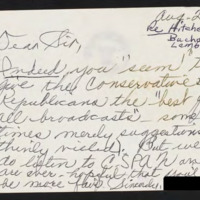 Aug-2
Re Hitchens
Bucha
Lamb
Dear Sir,
Indeed, you "seem" t
give the Conservative
Republicans the "best
all broadcasts" some
times merely suggestion
thinly viciled). But we
do listen to CSPAN an
are ever-hopeful that you
be more fair Sincerely,